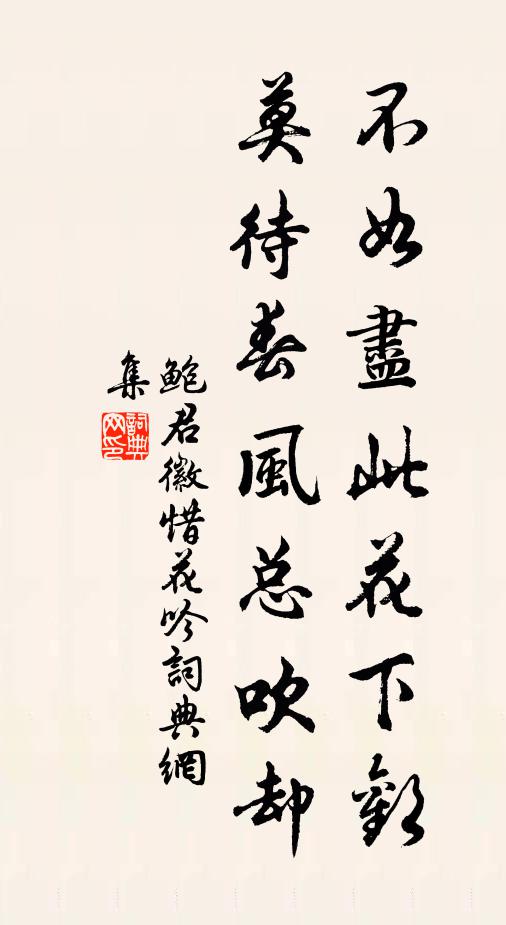 不如盡此花下歡
莫待春風总吹却
鲍君徽惜花吟詞典網
集
詞典網印